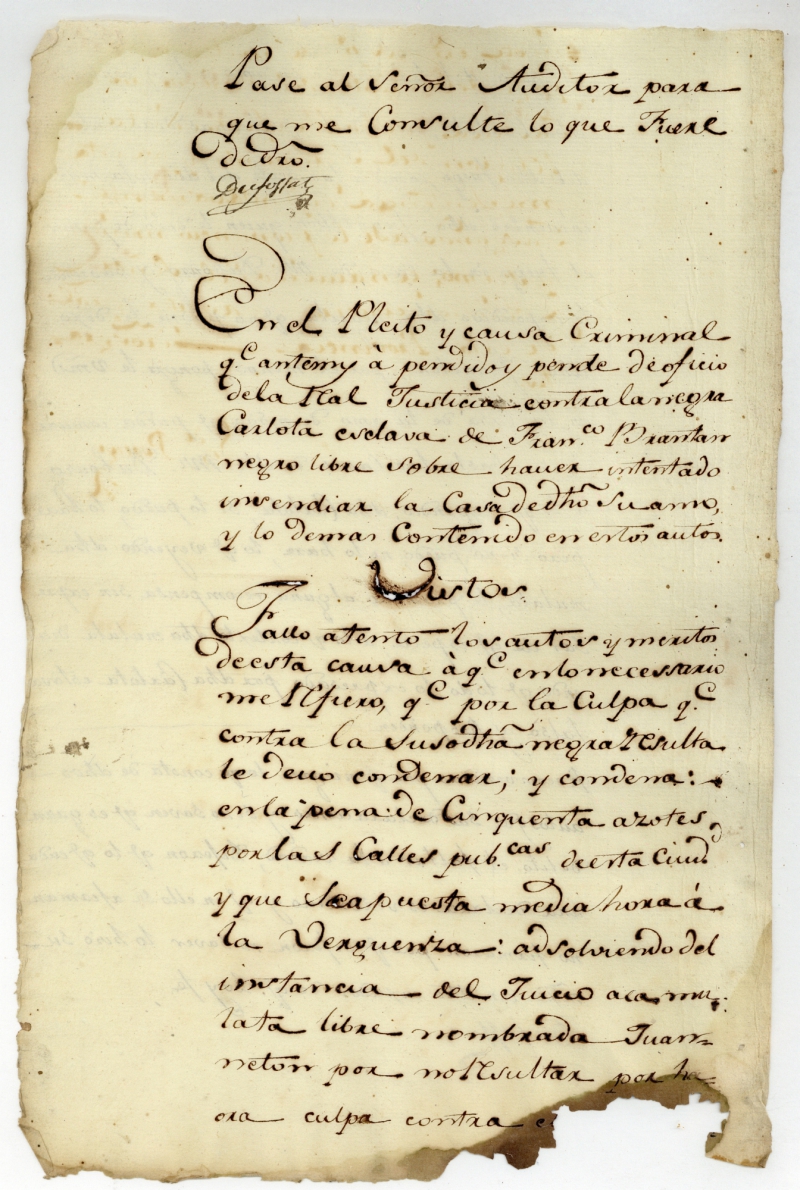 Pase al Señor Auditor para
que me Consulte lo que Fuere
de dro.
Dufossat
En el Pleito y causa Criminal
q.e antemy à pendido y pende de oficio
dela Rl Justicia contra la negra
Carlota esclava de Fran.co Brantan
negro libre sobre haver intentado
insendiar la Casa de dho Su amo,
y lo demas Contenido en estos autos.
Vistos.
Fallo atento los autos y meritos
de esta causa à q.e en lo necessario
me Refiero, q.e por la Culpa q.e
contra la susodha negra Resulta
le devo condenar; y condena:
en la pena de Cinquenta azotes,
por las Calles pub.cas de esta Ciud
y que Sea puesta media hora à
la Verguenza: adsolviendo del
instancia del Juicio a la mu
lata libre nombrada Juan=
neton por no Resultar por ha=
ora culpa contra